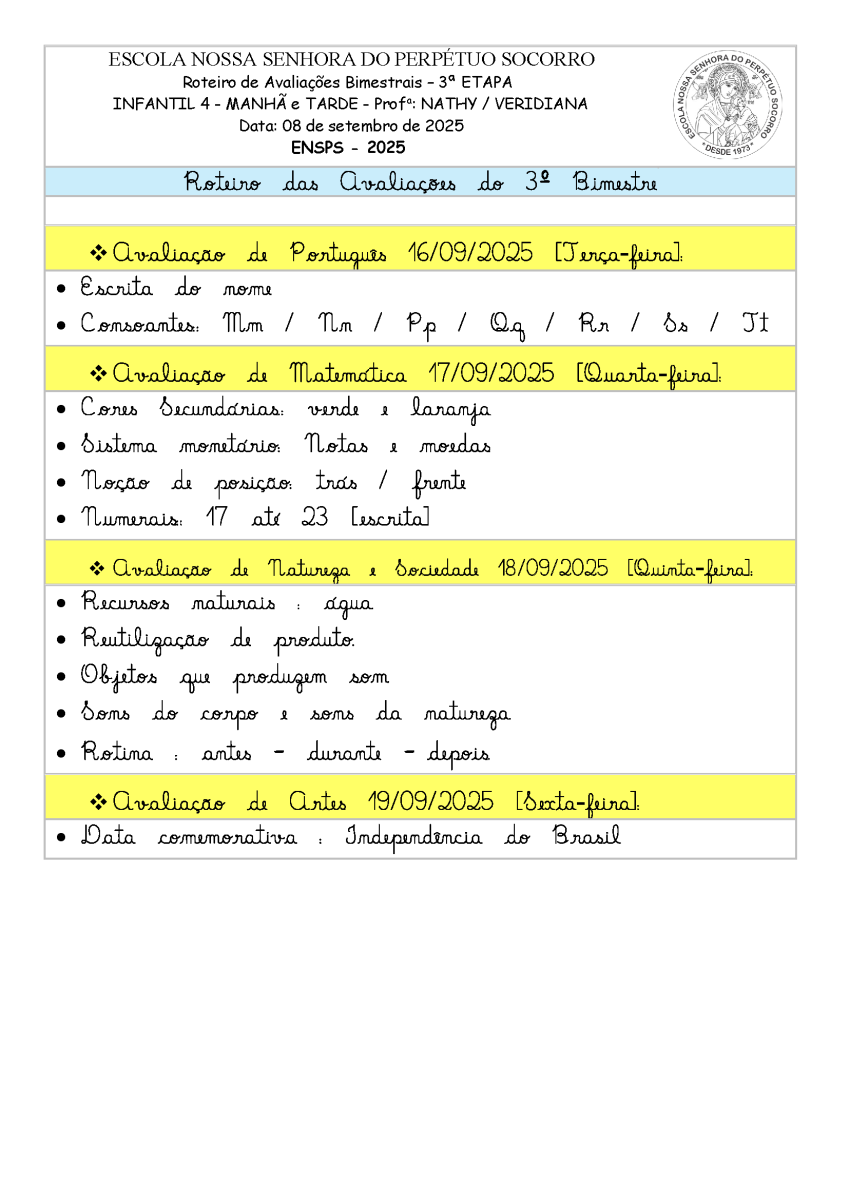 ESCOLA NOSSA SENHORA DO PERPÉTUO SOCORRO
Roteiro de Avaliações Bimestrais – 3ª ETAPA
INFANTIL 4 - MANHÃ e TARDE - Profª: NATHY / VERIDIANA
Data: 08 de setembro de 2025
ENSPS - 2025
ESCOLA NOSSA SENHORA DO PERPÉTUO SOCORRO
"DESDE 1973"
Roteiro das Avaliações do 3º Bimestre
❖ Avaliação de Português 16/09/2025 [Terça-feira]:
• Escrita do nome
• Consoantes: Mm / Nn / Pp / Qq / Rr / Ss / Tt
❖ Avaliação de Matemática 17/09/2025 [Quarta-feira]:
• Cores Secundárias: verde e laranja
• Sistema monetário: Notas e moedas
• Noção de posição: trás / frente
• Numerais: 17 até 23 [escrita]
❖ Avaliação de Natureza e Sociedade 18/09/2025 [Quinta-feira]:
• Recursos naturais : água
• Reutilização de produto.
• Objetos que produzem som
• Sons do corpo e sons da natureza
• Rotina : antes - durante - depois
❖ Avaliação de Artes 19/09/2025 [Sexta-feira]:
• Data comemorativa : Independência do Brasil